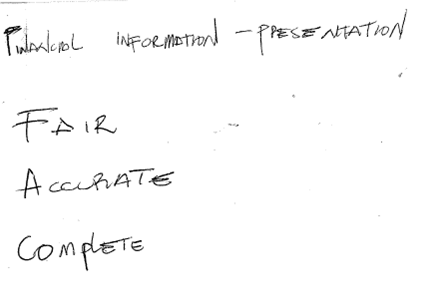 FINANCIAL INFORMATION - PRESENTATION
FAIR
ACCURATE
COMPLETE